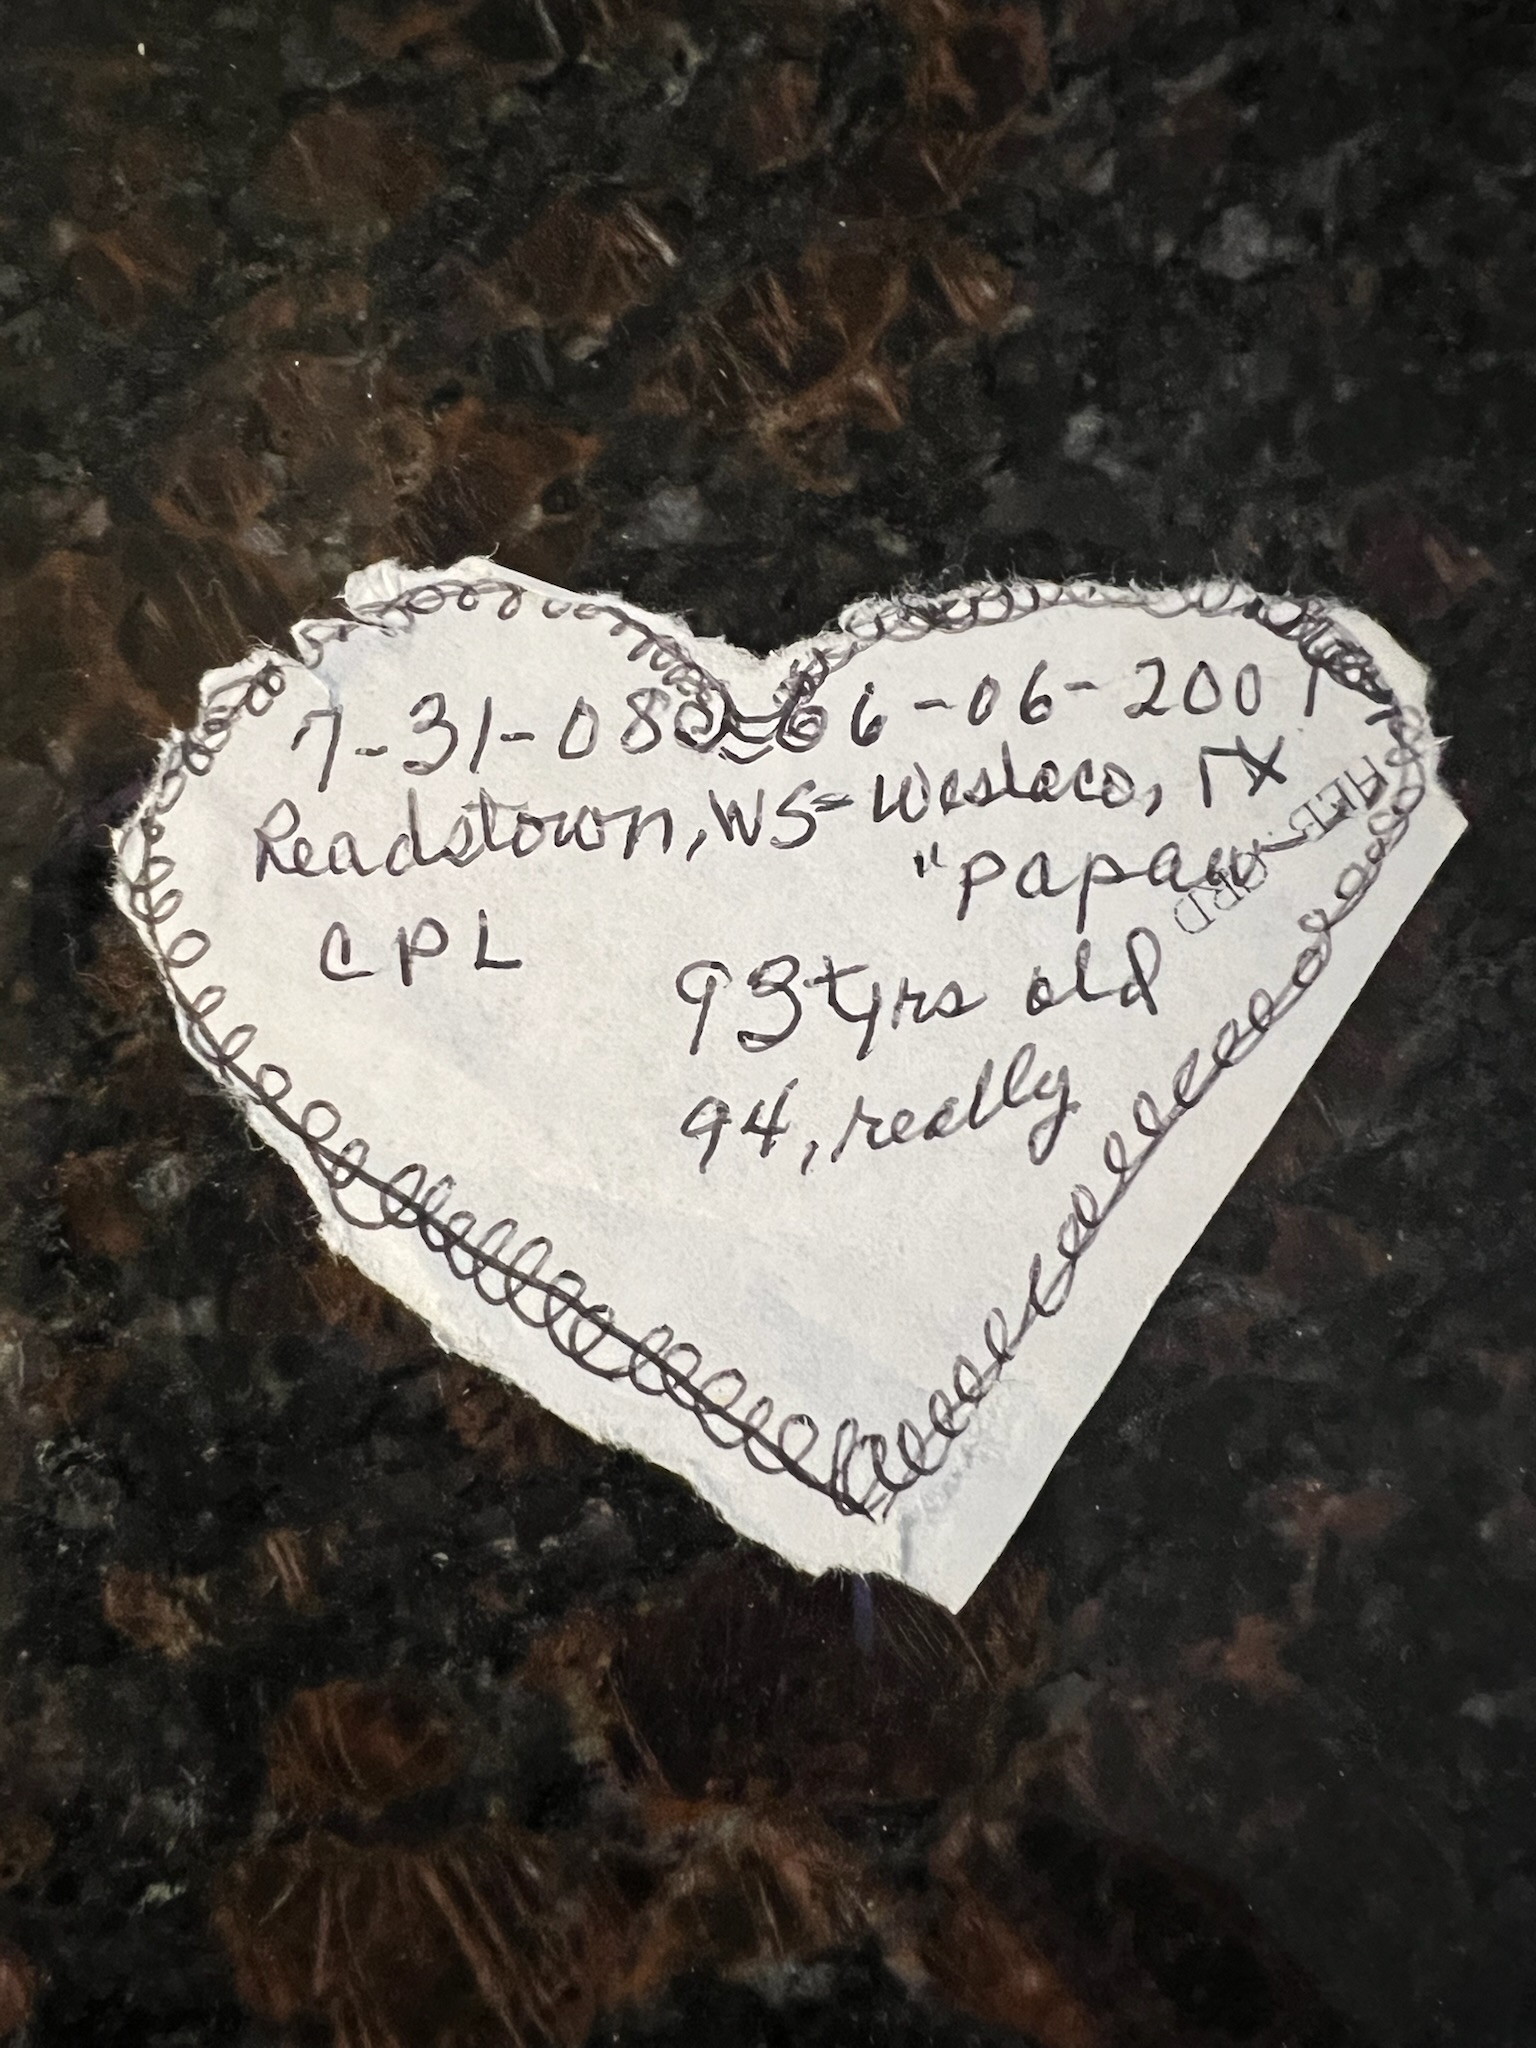 7-31-08 = 06-06-2001
Readstown, WS = Weslaco, TX
"Papaw
CPL
93tyrs old
94, really